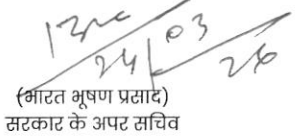 24/03/26
(भारत भूषण प्रसाद)
सरकार के अपर सचिव